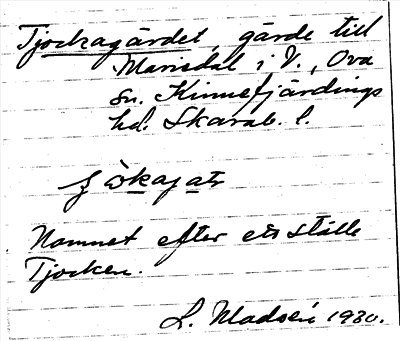 Tjockagärdet, gärde till
Marisdal i V., Ova
sn. Kinnefjärdings
hd. Skarab. l.
Namnet efter ett ställe
Tjocken.
L. Madsén 1930.